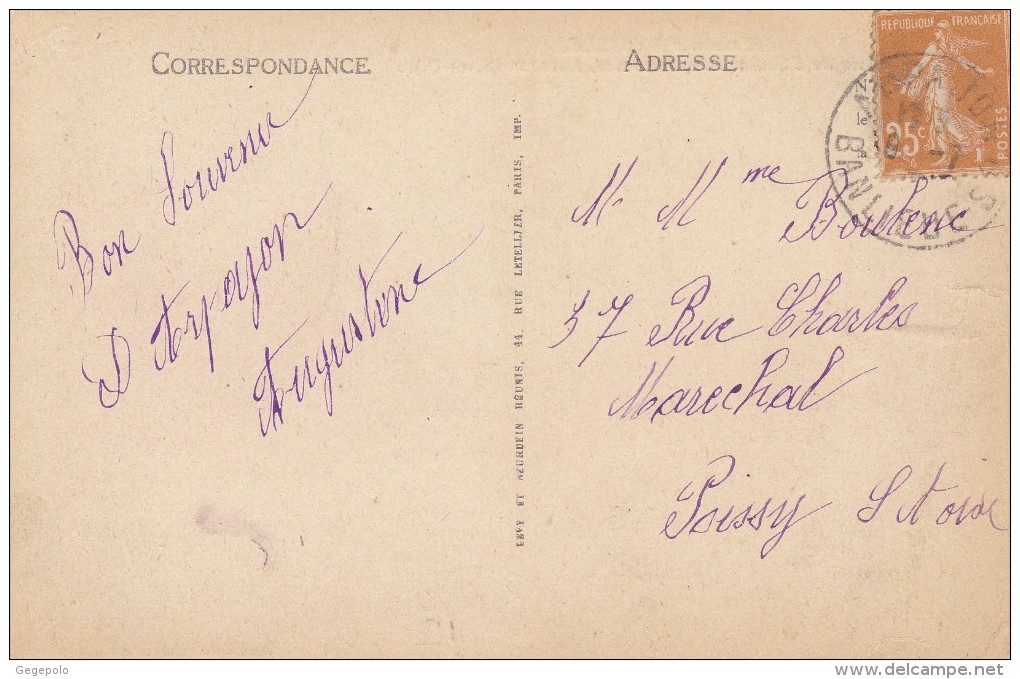 CORRESPONDANCE
Bon Souvenir
D'Arpajon
Augustine
LEVY ET NEURDEIN RÉUNIS, 44, RUE LETELLIER, PARIS, IMP.
ADRESSE
RÉPUBLIQUE FRANÇAISE
25c
POSTES
BANLIEUE
M. Mme Boulenc
37 Rue Charles
Marechal
Poissy S et oise
Gegepolo
www.delcampe.net